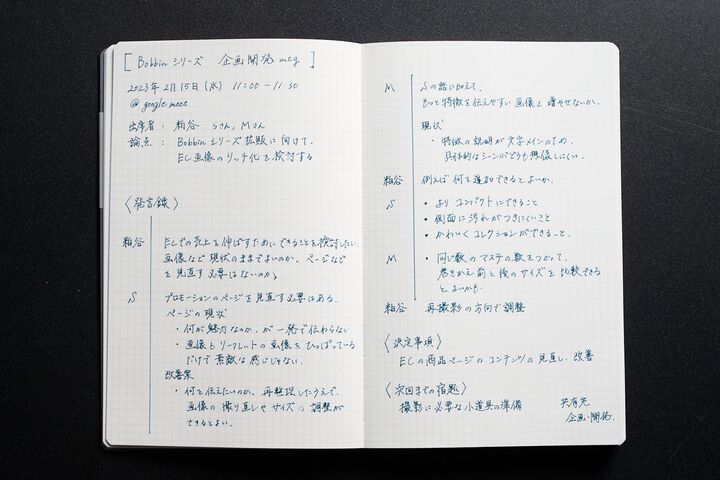 [ Bobbin シリーズ 企画開発 mtg ]
2023年 2月15日 (水) 11:00 – 11:30
@ google meet
出席者 : 粕谷 Sさん, Mさん
論点 : Bobbin シリーズ 拡販に向けて、
EC画像のリッチ化を検討する
〈発言録〉
粕谷 ECでの売上を伸ばすためにできることを検討したい
画像など現状のままでよいのか、ページなど
を見直す必要はないのか。
S プロモーションのページを見直す必要はある。
ページの現状
・何が魅力なのか、が一発で伝わらない
・画像もリーフレットの画像をひっぱっている
だけで素敵な感じじゃない。
改善案
・何を伝えたいのか、再整理したうえで、
画像の撮り直しやサイズの調整が
できるとよい。
M Sの話に加えて、
もっと特徴を伝えやすい画像を増やせないか。
現状
・特徴の説明が文字メインのため、
具体的なシーンがどうも想像しにくい。
粕谷 例えば何を追加できるとよいか。
S ・よりコンパクトにできること
・側面に汚れがつきにくいこと
・かわいくコレクションができること。
M ・同じ数のマステの数をつかって、
巻きかえ前と後のサイズを比較できる
とよいかも。
粕谷 再撮影の方向で調整
〈決定事項〉
ECの商品ページのコンテンツの見直し、改善
〈次回までの宿題〉
撮影に必要な小道具の準備
共有先
企画・開発.